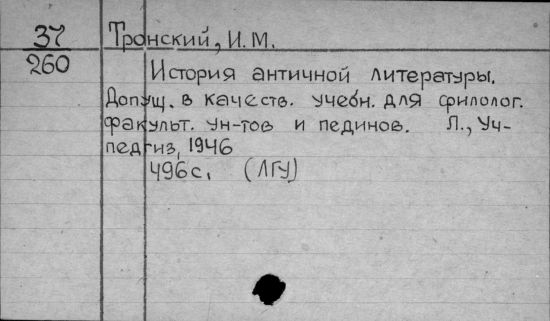 37
260
Тронский, И. М.
История античной литературы.
Допущ. в качеств. учебн. для филолог.
факульт. ун-тов и пединов. Л., Уч-
педгиз, 1946
496 с. (ЛГУ)